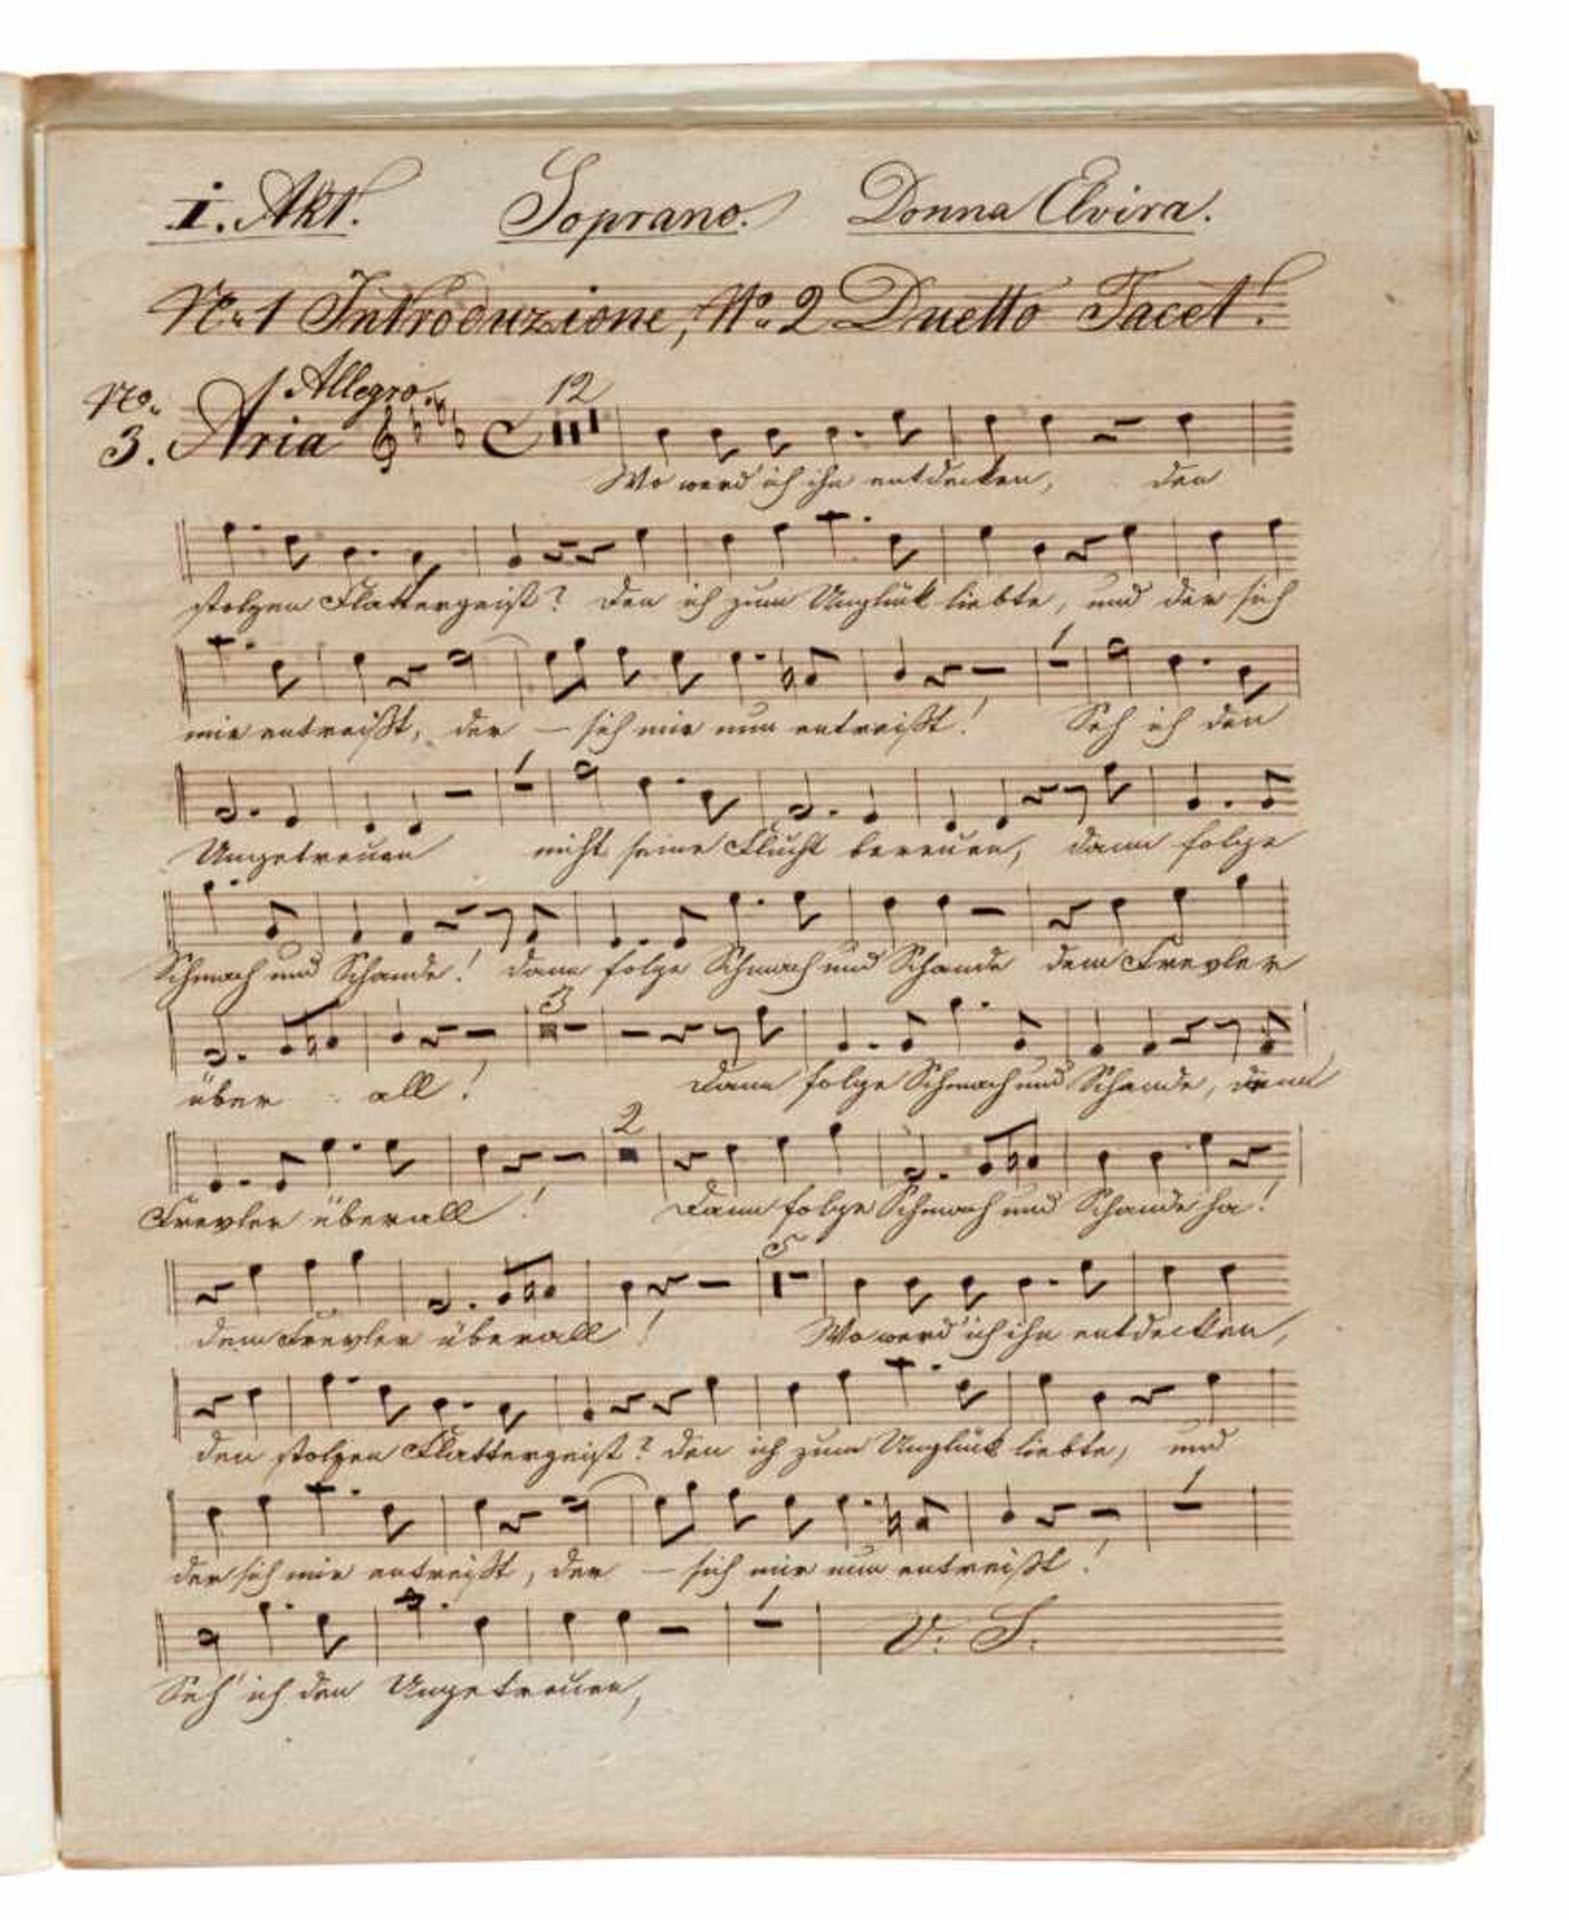 I. Akt. Soprano. Donna Elvira.
No. 1 Introduzione, No. 2 Duetto Tacet!
No. 3. Aria Allegro. 12
Wo werd' ich ihn entdecken, den
stolzen Flattergeist? den ich zum Unglük liebte, und der sich
mir entreißt, der — sich mir nun entreißt! Seh ich den
1
Ungetreuen nicht seine Flucht bereuen, dann folge
1
Schmach und Schande! dann folge Schmach und Schande dem Frevler
3
über all! Dann folge Schmach und Schande, dem
2
Frevler überall! Dann folge Schmach und Schande ha!
5
dem Frevler überall! Wo werd' ich ihn entdecken,
den stolzen Flattergeist? den ich zum Unglük liebte, und
1
der sich mir entreißt, der — sich mir nun entreißt!
1 V. S.
Seh' ich den Ungetreuen,